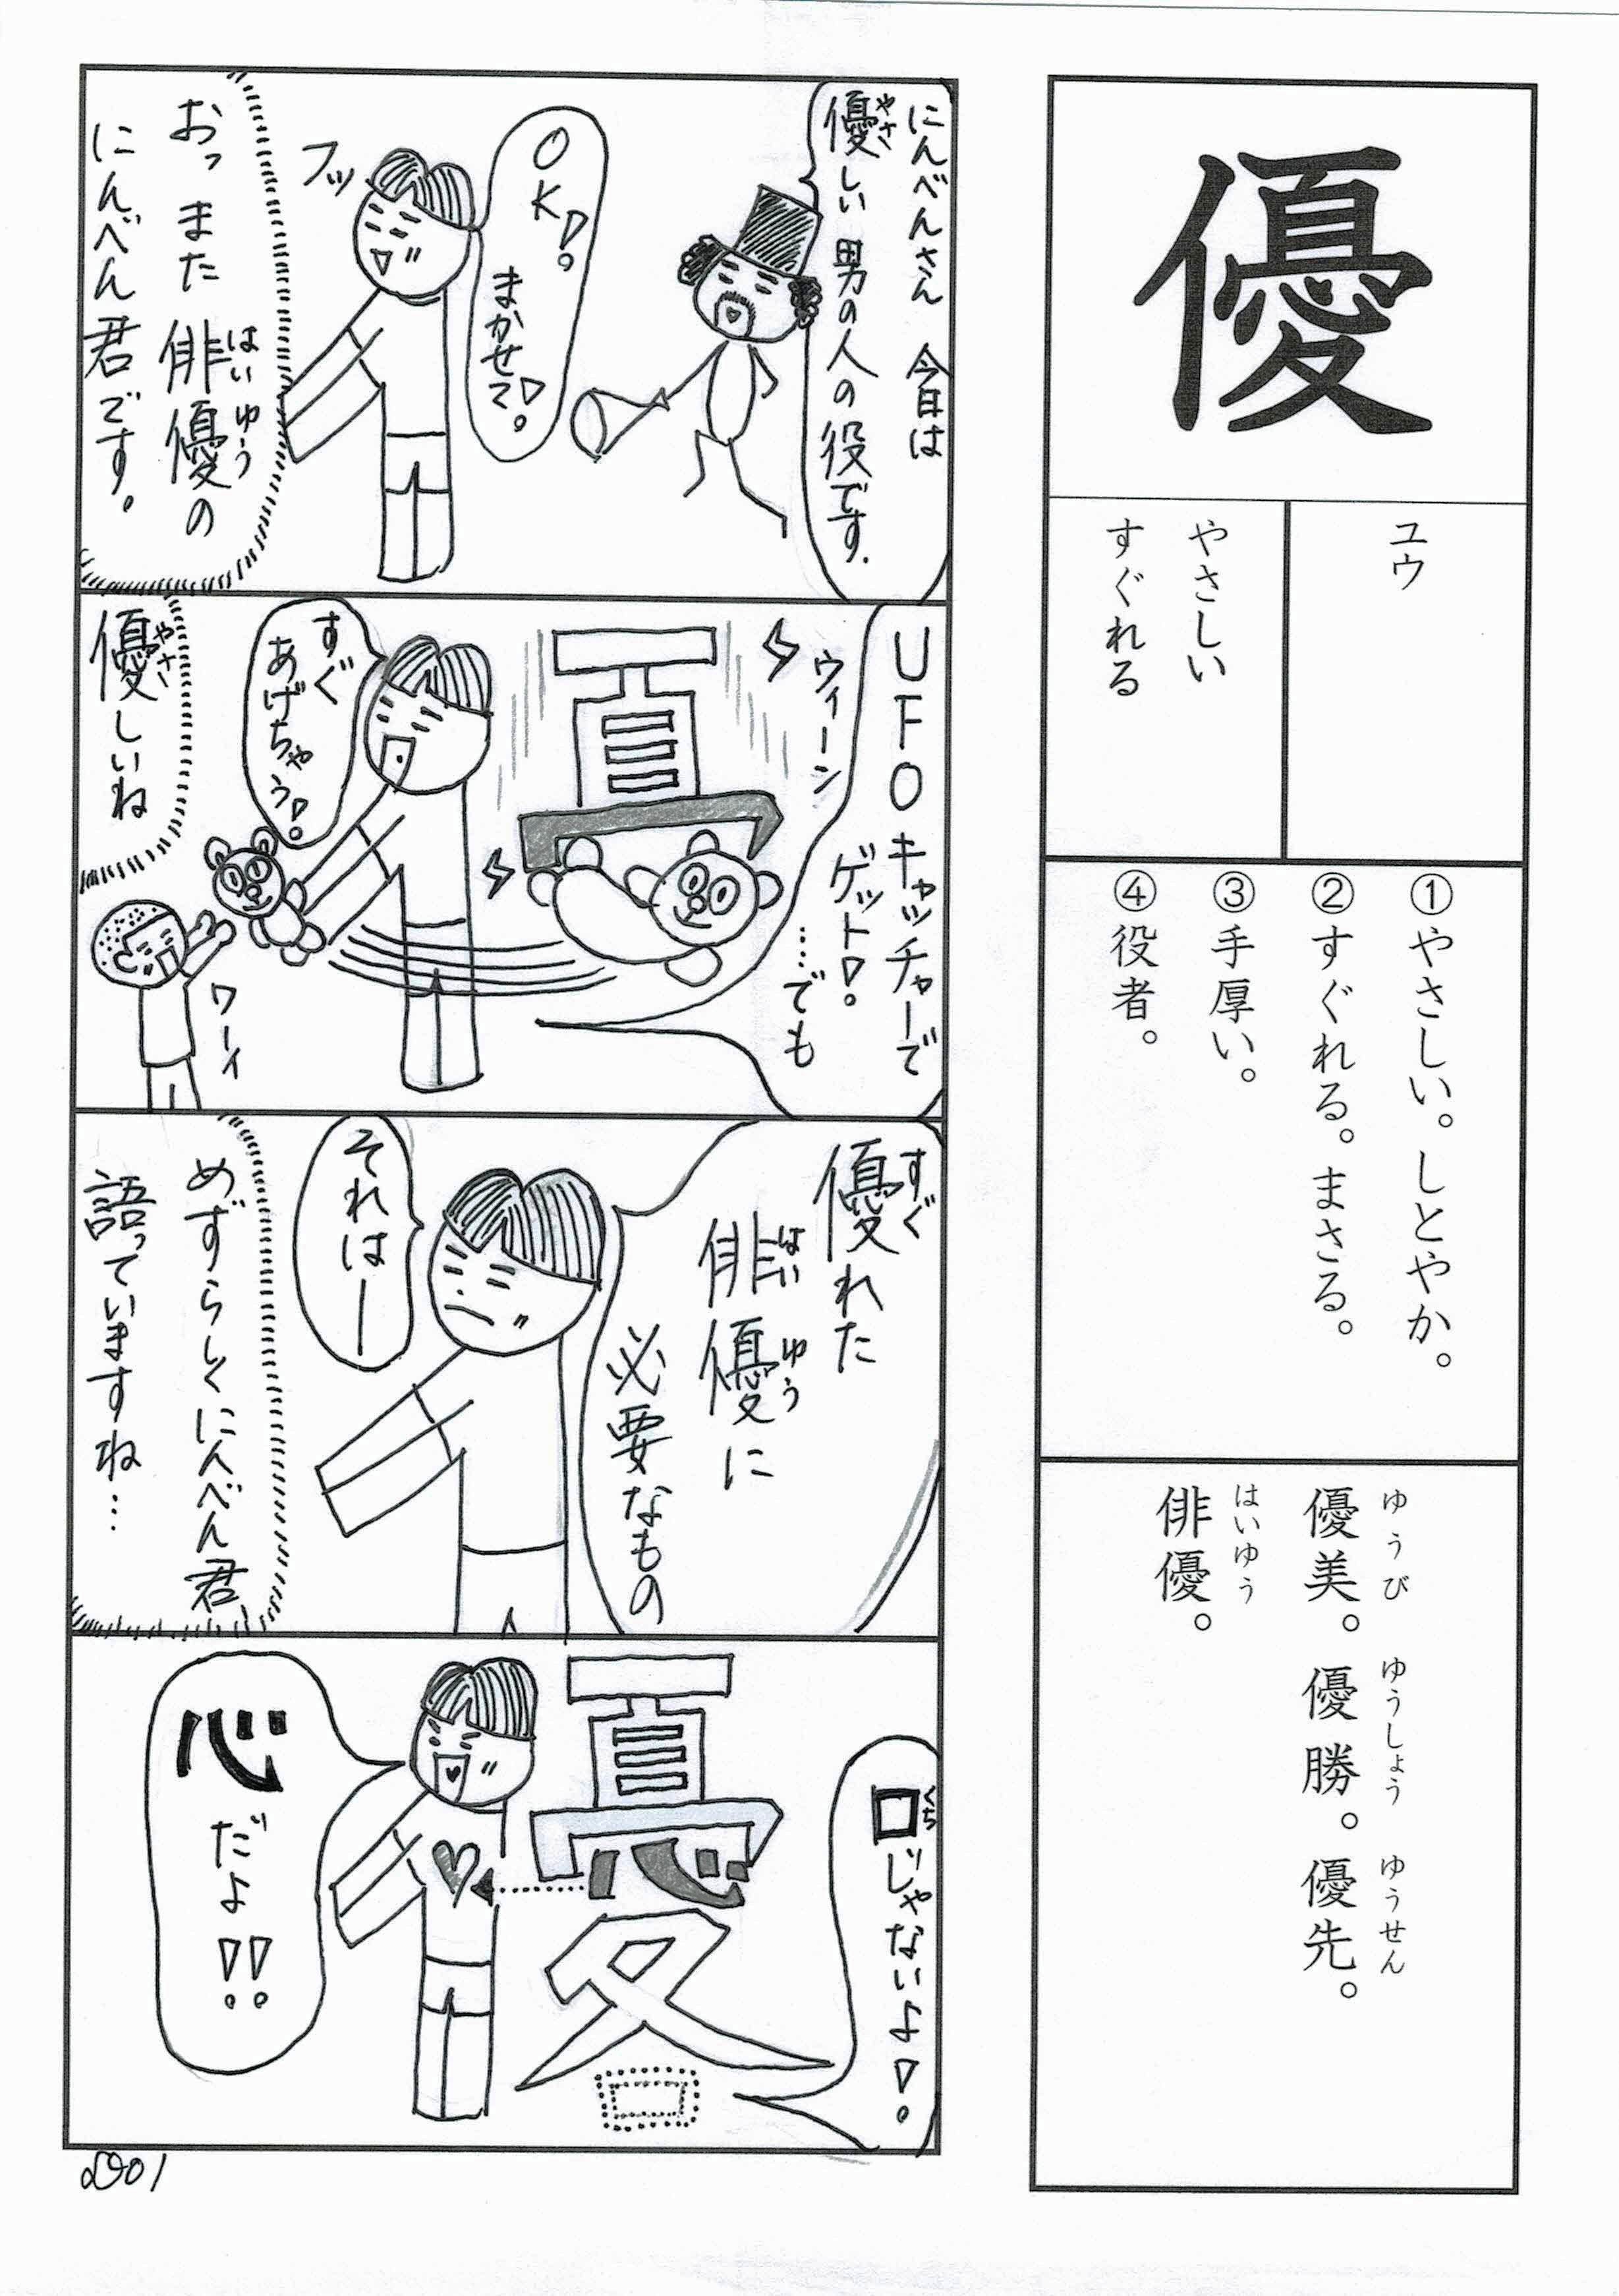 優
ユウ
やさしい
すぐれる
①やさしい。しとやか。
②すぐれる。まさる。
③手厚い。
④役者。
ゆうび ゆうしょう ゆうせん
優美。優勝。優先。
はいゆう
俳優。
にんべんさん 今日は
やさ
優しい男の人の役です.
OK!
まかせて!
フッ
おっ また 俳優の
はいゆう
にんべん君です。
UFOキャッチャーで
ゲット!
…でも
ウィーン
すぐ
あげちゃう!
やさ
優しいね
ワーイ
すぐ
優れた
はいゆう
俳優に
必要なもの
それはー
めずらしくにんべん君
語っていますね…
くち
口じゃないよ!
憂
心だよ!!